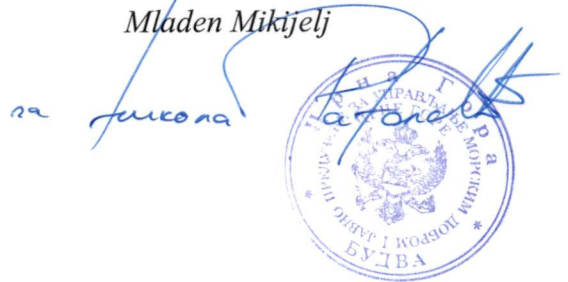 Mladen Mikijelj
за
Црна Гора
ЈАВНО ПРЕДУЗЕЋЕ ЗА УПРАВЉАЊЕ МОРСКИМ ДОБРОМ
БУДВА